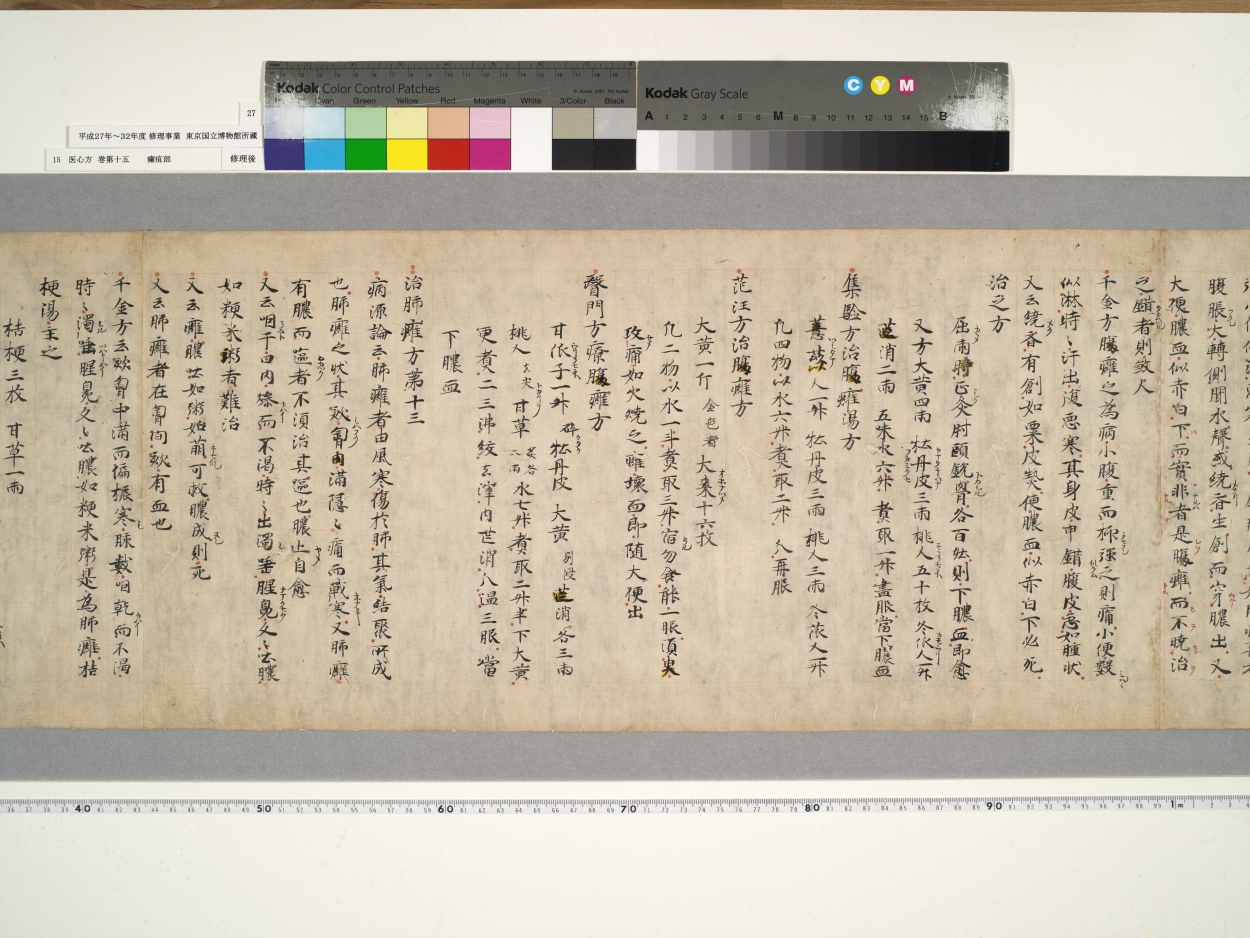 Kodak Color Control Patches
Cyan Green Yellow Red Magenta White 3/Color Black
Kodak Gray Scale
C Y M
A 1 2 3 4 5 6 M 8 9 10 11 12 13 14 15 B
27
平成27年～32年度 修理事業 東京国立博物館所蔵
15 医心方 巻第十五 癰疽部 修理後
腹脹大轉側聞水聲或繞齊生創而穿膿出又
大便膿血似赤白下而實非者是腸癰而不暁治
之錯者則致火
千金方腸癰之為病小腹重而極強之則痛小便數
似淋時〻汗出復惡寒其身皮甲錯腹皮急如腫狀
又云繞齊有創如粟皮熱便膿血似赤白下必死
治之方
屈兩時正灸肘頭銳骨各百壯則下膿血即愈
又方大黄四兩 牡丹皮三兩 桃人五十枚 冬瓜人一升
芒消二兩 五味水六升煮取一升盡服當下膿血
集驗方治腸癰湯方
薏苡人一升 牡丹皮三兩 桃人三兩 冬瓜人一升
凡四物以水六升煮取二升分再服
范汪方治腸癰方
大黄一斤 金色者 大棗十六枚
凡二物以水一斗煮取三升宿勿食能一服須臾
攻痛如火燒之癰壞血即随大便出
醫門方療腸癰方
甘瓜子一升 碎 牡丹皮 大黄 別浸 芒消各三兩
桃人 去尖 甘草 炙各二兩 水七升煮取二升半下大黄
更煮二三沸絞去滓内芒消分温三服當
下膿血
治肺癰方第十三
病源論云肺癰者由風寒傷於肺其氣結聚所成
也肺癰之狀其咳胷内滿隠〻痛而戰寒又肺癰
有膿而嘔者不須治其嘔也膿止自愈
又云咽干口内燥而不渴時〻出濁唾腥臭久〻吐膿
如粳米粥者難治
又云癰膿吐如粥始萌可救膿成則死
又云肺癰者在胷間咳有血也
千金方云咳胷中滿而偏振寒脉數咽乾而不渴
時〻濁唾腥臭久〻吐膿如粳米粥是為肺癰桔
梗湯主之
桔梗三枚 甘草一兩
40 50 60 70 80 90 1m